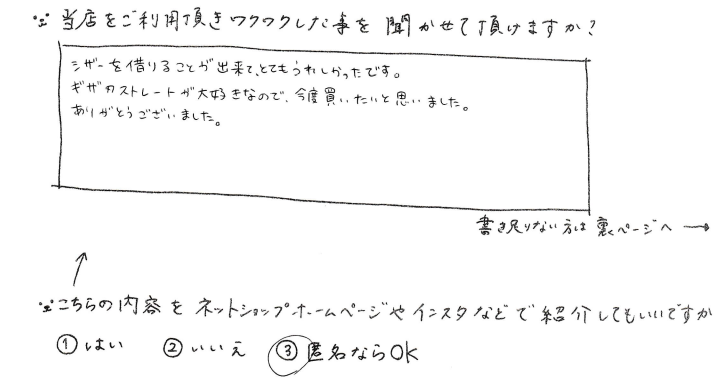 ※当店をご利用頂きワクワクした事を聞かせて頂けますか?
シザーを借りることが出来て、とてもうれしかったです。
ギザ刃ストレートが大好きなので、今度買いたいと思いました。
ありがとうございました。
書き足りない方は裏ページへ →
※こちらの内容をネットショップホームページやインスタなどで紹介してもいいですか
①はい ②いいえ ③匿名ならOK